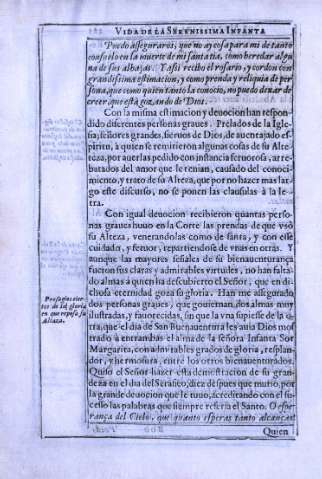 VIDA DE LA SERENISSIMA INFANTA
Puedo asseguraros, que no ay cosa para mi de tanto
consuelo en la muerte de mi santa tia, como heredar algu
na de sus alhajas. Y assi recibo el rosario, y cordon con
grandissima estimacion, y como prenda y reliquia de per
sona, que como quien tanto la conocio, no puedo dexar de
creer que està gozando de Dios.
Con la misma estimacion y deuocion han respon
dido diferentes personas graues. Prelados de la Igle
sia, señores grandes, sieruos de Dios, de auentajado es-
piritu, à quien se remitieron algunas cosas de su Alte
teza, por auerlas pedido con instancia feruorosa, ar
rebatados del amor que le tenian, causado del conoci
miento, y trato de su Alteza, que por no hazer mas lar
go este discurso, no se ponen las clausulas à la le-
tra.
Con igual deuocion recibieron quantas perso
nas graues huuo en la Corte las prendas de que vsò
su Alteza, venerandolas como de santa, y con esse
cuidado, y feruor, repartiendose de vnas en otras. Y
aunque las mayores señales de su bienauenturança
fueron sus claras y admirables virtudes, no han falta
do almas à quien ha descubierto el Señor, que en di-
chosa eternidad goza su gloria. Han me assegurado
dos personas graues, que gouiernan dos almas muy
ilustradas, y fauorecidas, sin que la vna supiesse de la o
tra, que el dia de San Buenauentura les auia Dios mos
trado à entrambas el alma de la señora Infanta Sor
Margarita, con notables grados de gloria, resplan-
dor, y hermosura, entre los otros bienauenturados.
Quiso el Señor hazer esta demostracion de su gran
deza en el dia del Serafico, diez despues que murio, por
la grande deuocion que le tuuo, acreditando con el su
cesso las palabras que siempre referia el Santo. O espe
rança del Cielo, que quanto esperas tanto alcanças!
Quien
en que reposa su
Alteza.